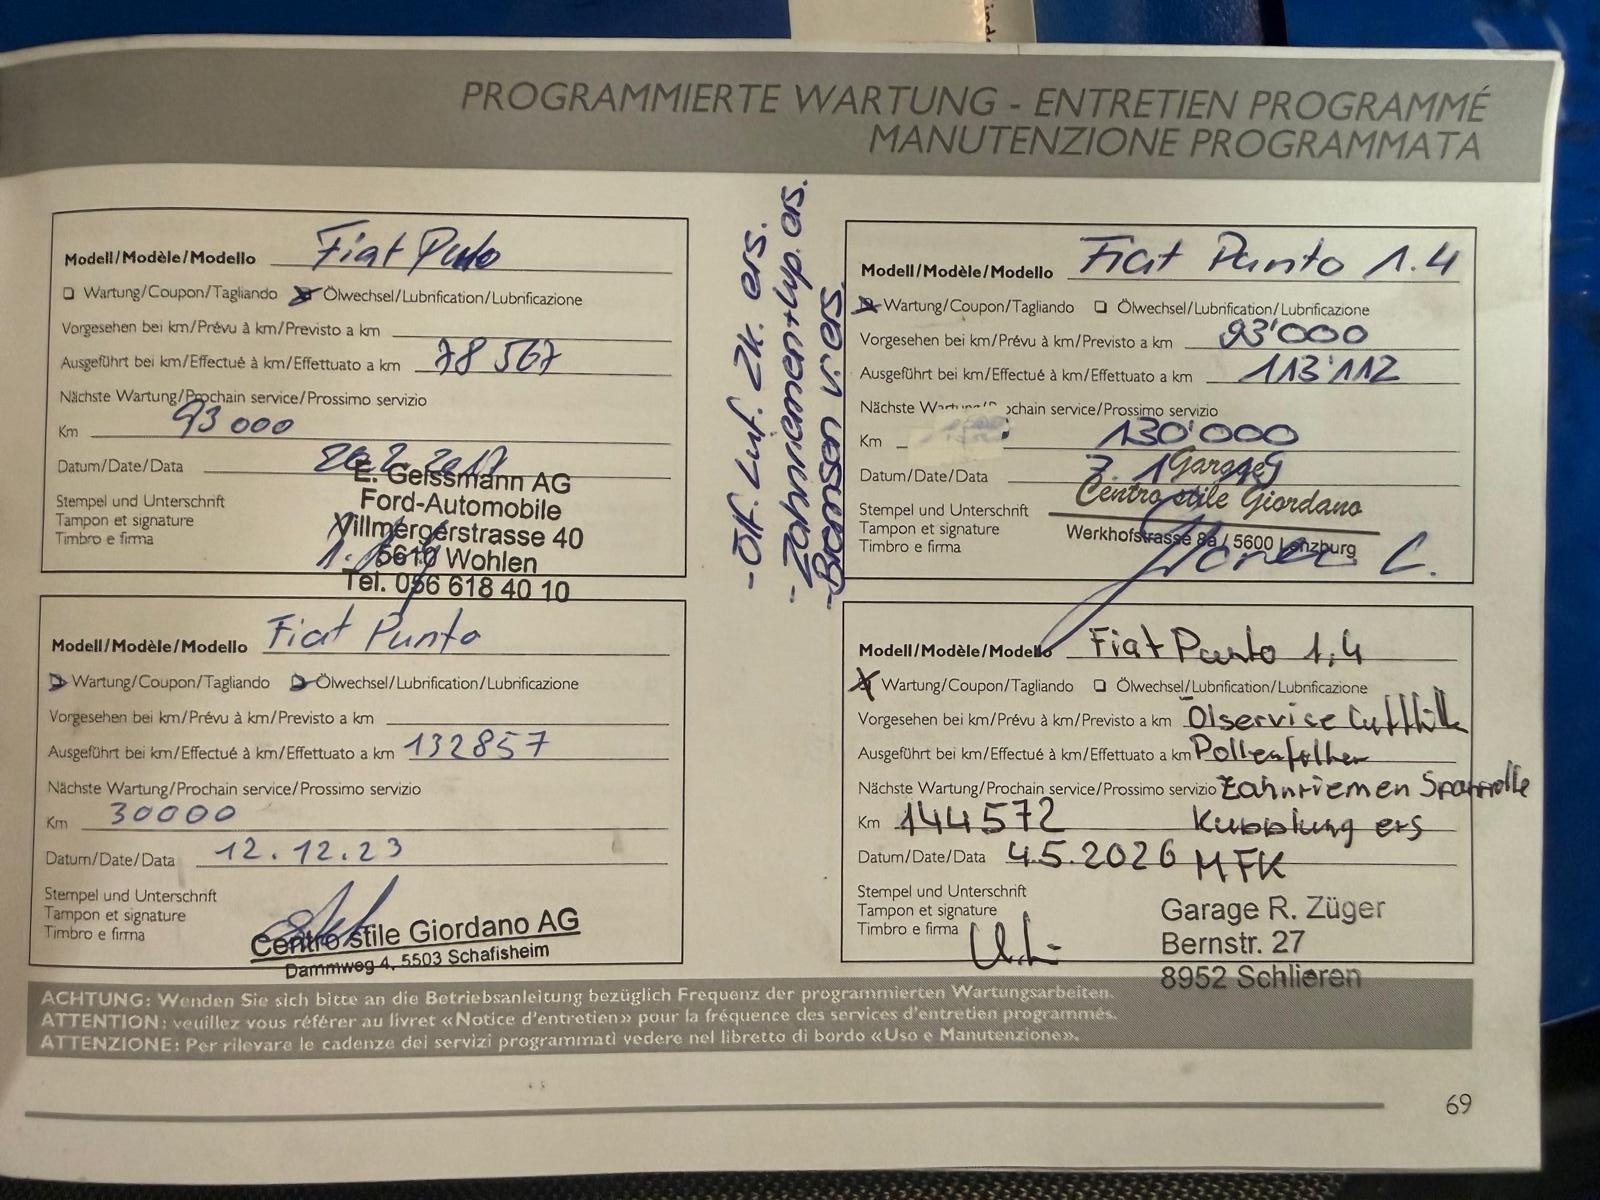 PROGRAMMIERTE WARTUNG - ENTRETIEN PROGRAMMÉ
MANUTENZIONE PROGRAMMATA
Modell/Modèle/Modello Fiat Punto
Wartung/Coupon/Tagliando Ölwechsel/Lubrification/Lubrificazione
Vorgesehen bei km/Prévu à km/Previsto a km
Ausgeführt bei km/Effectué à km/Effettuato a km 78 567
Nächste Wartung/Prochain service/Prossimo servizio
Km 93 000
Datum/Date/Data 20.2.2017
Stempel und Unterschrift
Tampon et signature
Timbro e firma
E. Geissmann AG
Ford-Automobile
Villmergerstrasse 40
5610 Wohlen
Tel. 056 618 40 10
- Ölf. Luf. Zk. ers.
- Zahnriemen + Wp. ers.
- Bremsen v. ers.
Modell/Modèle/Modello Fiat Punto 1.4
Wartung/Coupon/Tagliando Ölwechsel/Lubrification/Lubrificazione
Vorgesehen bei km/Prévu à km/Previsto a km 93'000
Ausgeführt bei km/Effectué à km/Effettuato a km 113'112
Nächste Wartung/Prochain service/Prossimo servizio
Km 130'000
Datum/Date/Data
Stempel und Unterschrift
Tampon et signature
Timbro e firma
Garage
Centro stile Giordano
Werkhofstrasse 8a / 5600 Lenzburg
Modell/Modèle/Modello Fiat Punto
Wartung/Coupon/Tagliando Ölwechsel/Lubrification/Lubrificazione
Vorgesehen bei km/Prévu à km/Previsto a km
Ausgeführt bei km/Effectué à km/Effettuato a km 132857
Nächste Wartung/Prochain service/Prossimo servizio
Km 30000
Datum/Date/Data 12.12.23
Stempel und Unterschrift
Tampon et signature
Timbro e firma
Centro stile Giordano AG
Dammweg 4, 5503 Schafisheim
Modell/Modèle/Modello Fiat Punto 1,4
Wartung/Coupon/Tagliando Ölwechsel/Lubrification/Lubrificazione
Vorgesehen bei km/Prévu à km/Previsto a km Ölservice
Ausgeführt bei km/Effectué à km/Effettuato a km Pollenfilter
Nächste Wartung/Prochain service/Prossimo servizio Zahnriemen Spannrolle
Km 144572 Kupplung ers
Datum/Date/Data 4.5.2026 MFK
Stempel und Unterschrift
Tampon et signature
Timbro e firma
Garage R. Züger
Bernstr. 27
8952 Schlieren
ACHTUNG: Wenden Sie sich bitte an die Betriebsanleitung bezüglich Frequenz der programmierten Wartungsarbeiten.
ATTENTION: veuillez vous référer au livret «Notice d'entretien» pour la fréquence des services d'entretien programmés.
ATTENZIONE: Per rilevare le cadenze dei servizi programmati vedere nel libretto di bordo «Uso e Manutenzione».
69